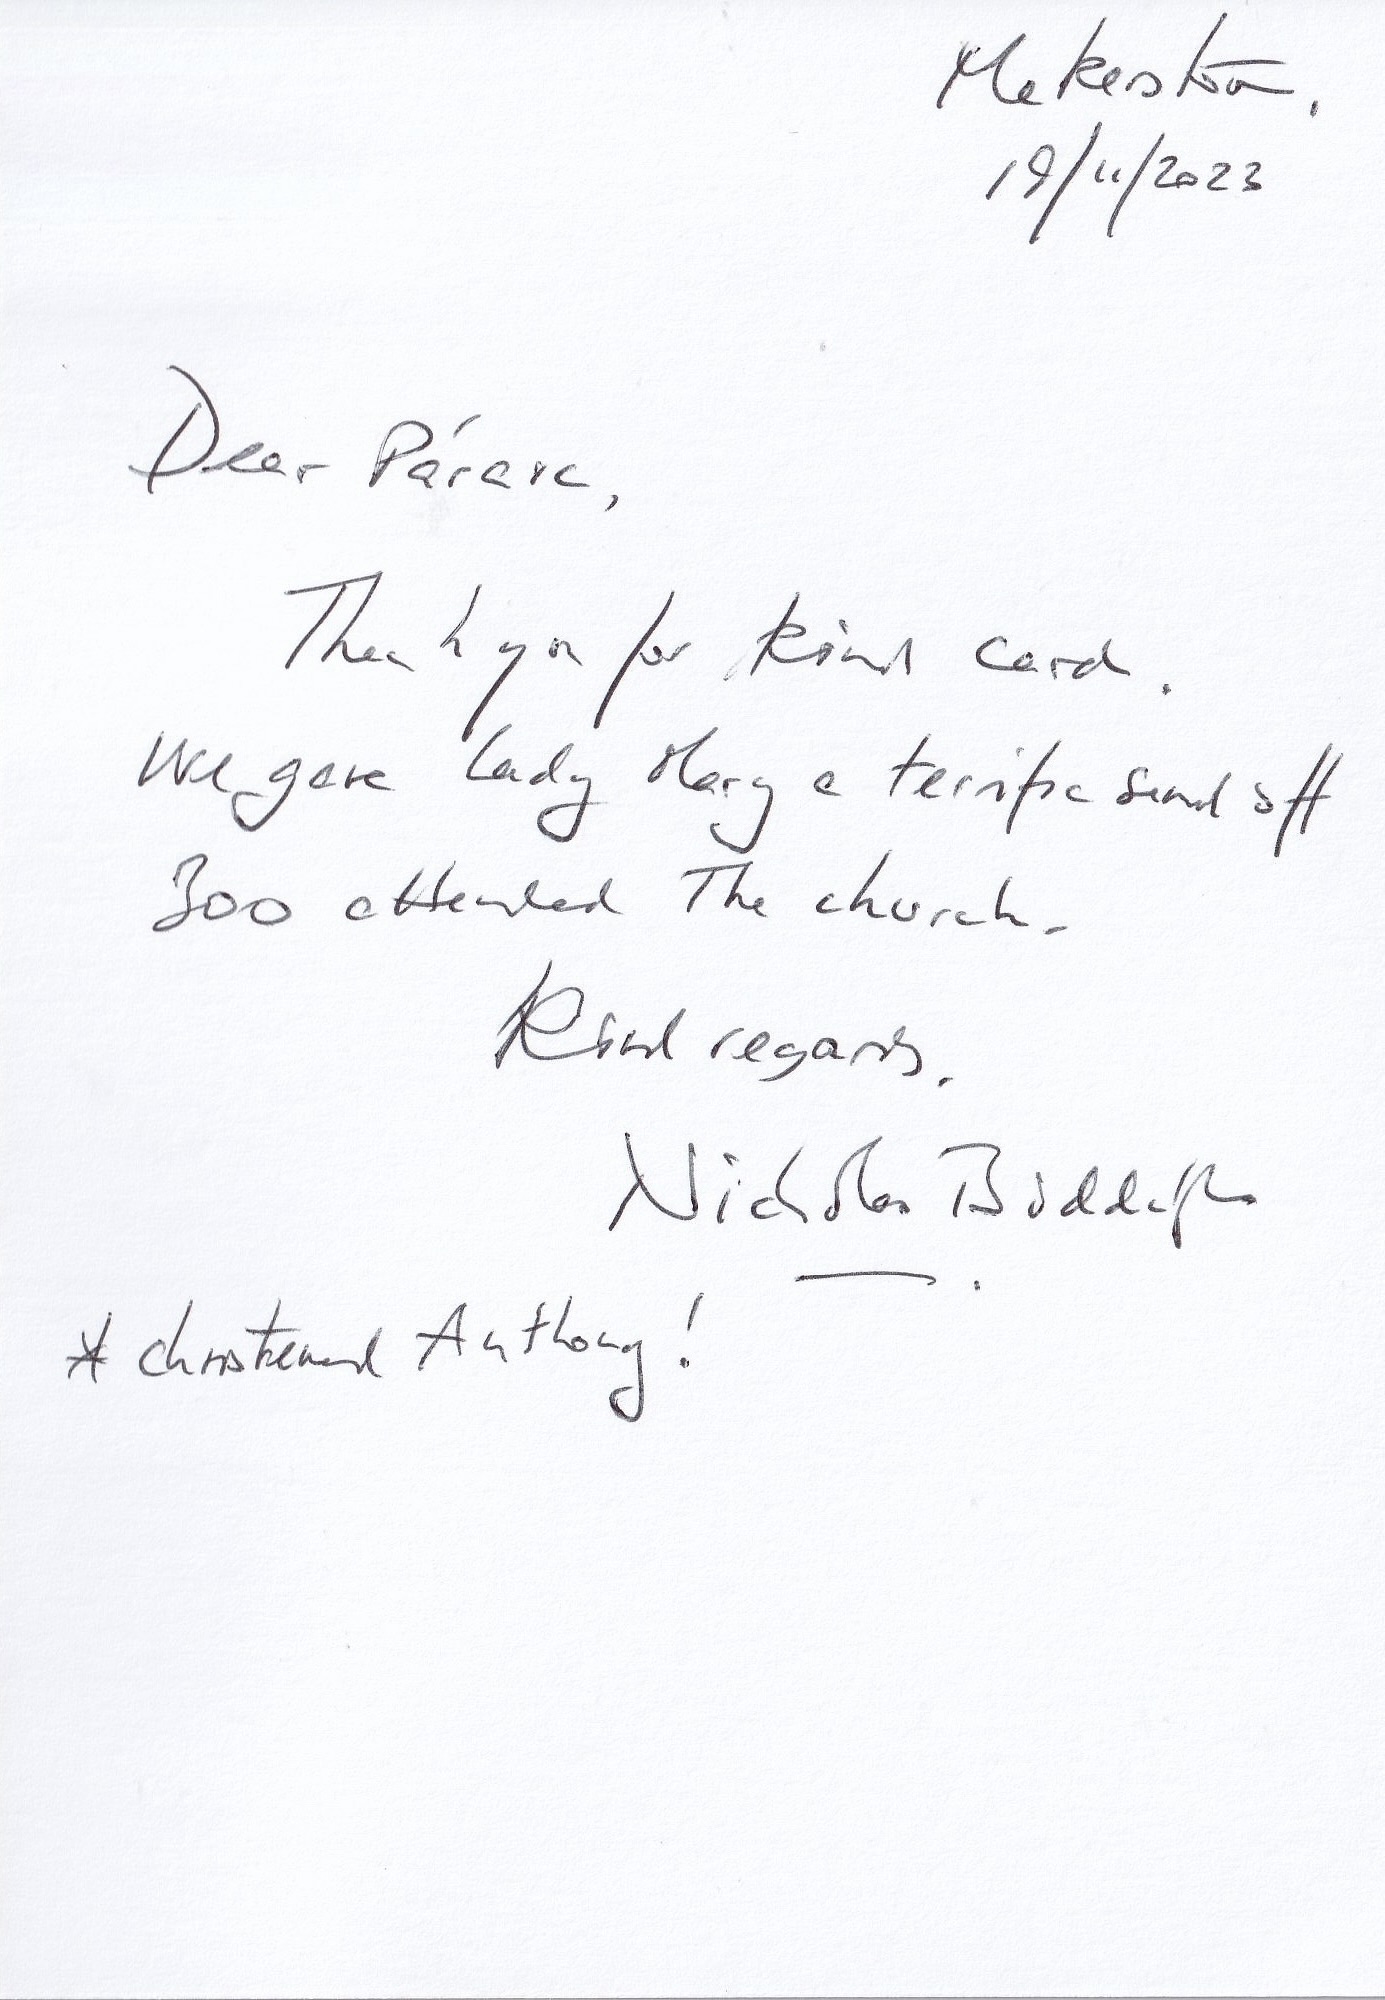 Makerstoun,
19/11/2023
Dear Páraic,
Thank you for kind card.
We gave Lady Mary a terrific send off
300 attended The church.
Kind regards.
Nicholas
* christened Anthony!